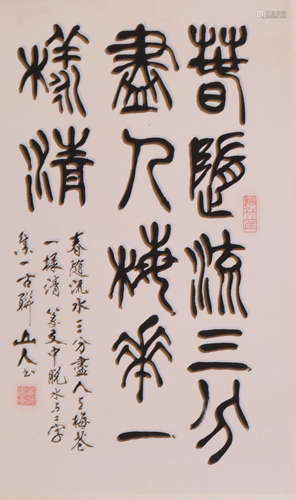 春隨流三分
盡人梅華一
樣清
春隨流水三分盡人与梅花
一樣清 篆文中脱水与二字
集一古聯 人书